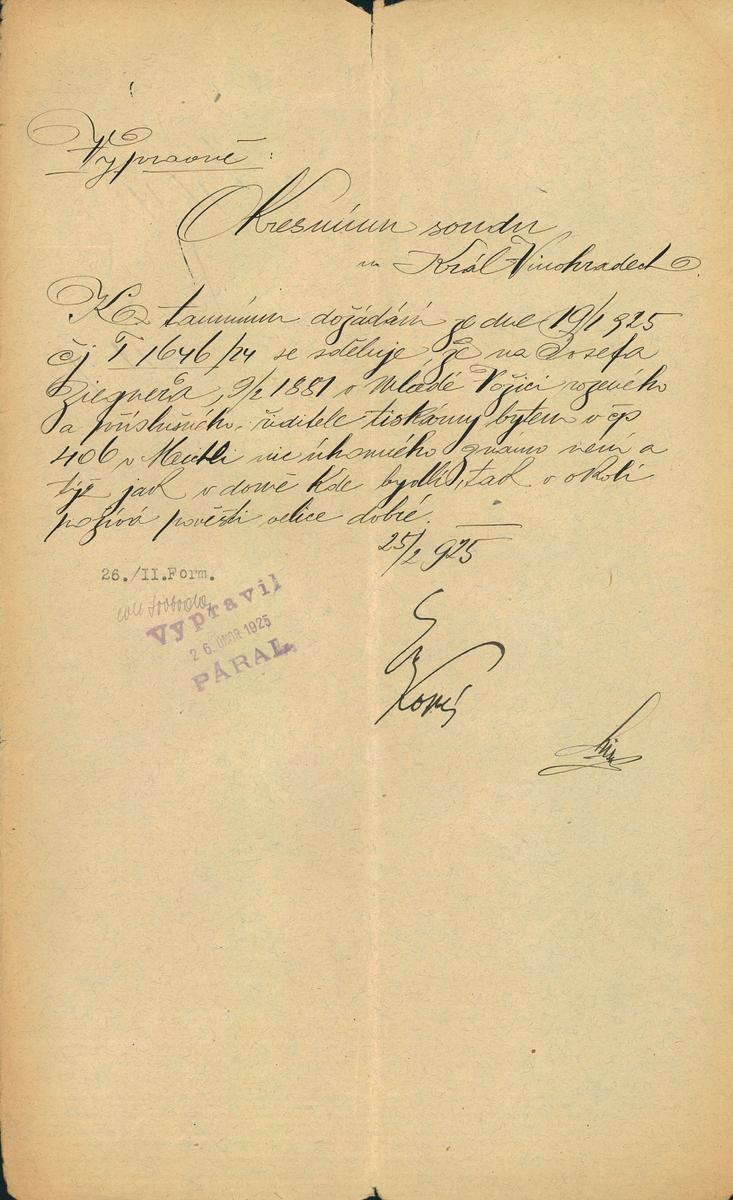 Výpravně:
Okresnímu soudu
na Král Vinohradech.
K tamnímu dožádání ze dne 19/1 925
čj T 1646/24 se sděluje, že na Josefa
Ziegnera, 9/2 1881 v Mladé Vožici rozeného
a příslušného, ředitele tiskárny bytem v čp
406 v nic úhonného známo není a
týž jak v domě kde bydlí, tak v okolí
požívá pověsti velice dobré.
25/2 925
26./II.Form.
Svoboda
Vypravil
26. ÚNOR 1925
PÁRAL